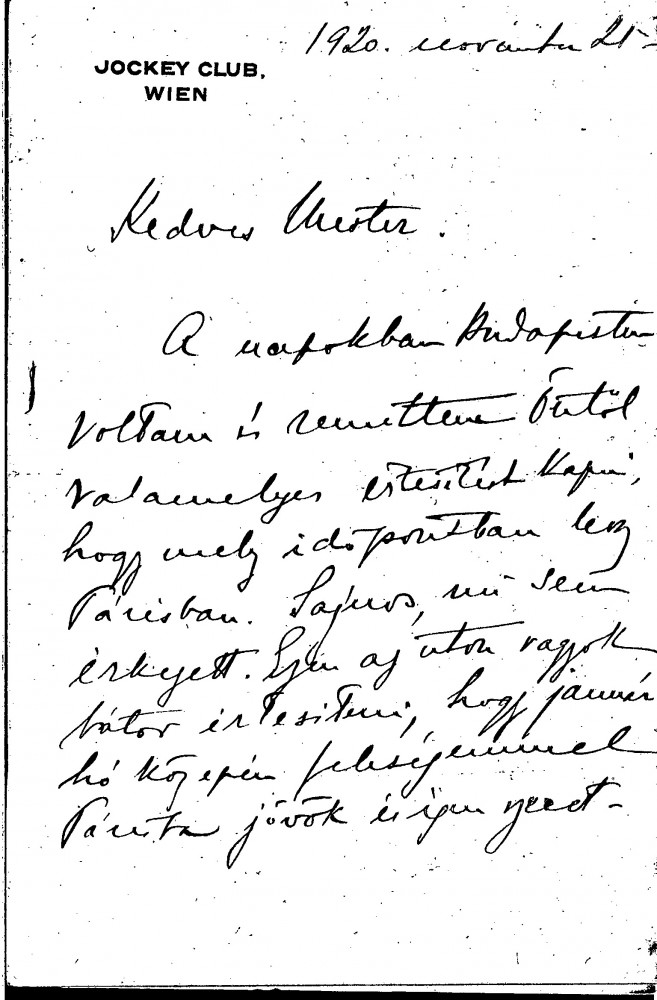 1920. november 21-
JOCKEY CLUB,
WIEN
Kedves Mester.
A napokban Budapesten
voltam és reméltem Öntöl
valamelyes értesitést kapni,
hogy mely időpontban lesz
Párisban. Sajnos, mi sem
érkezett. Ezen az úton vagyok
bátor értesiteni, hogy január
hó közepén feleségemmel
Párisba jövök és igen